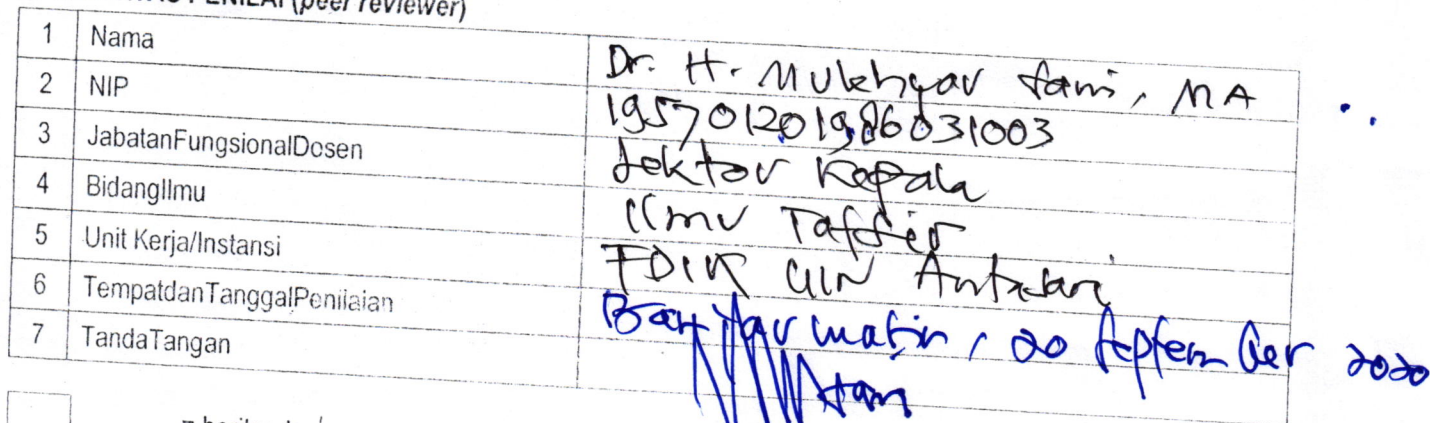 PENILAI (peer reviewer)
1 Nama Dr. H. Mukhyar Sani, MA
2 NIP 195701201986031003
3 JabatanFungsionalDosen Lektor Kepala
4 BidangIlmu Ilmu Tafsir
5 Unit Kerja/Instansi FDIK UIN Antasari
6 TempatdanTanggalPenilaian Banjarmasin, 20 September 2020
7 TandaTangan